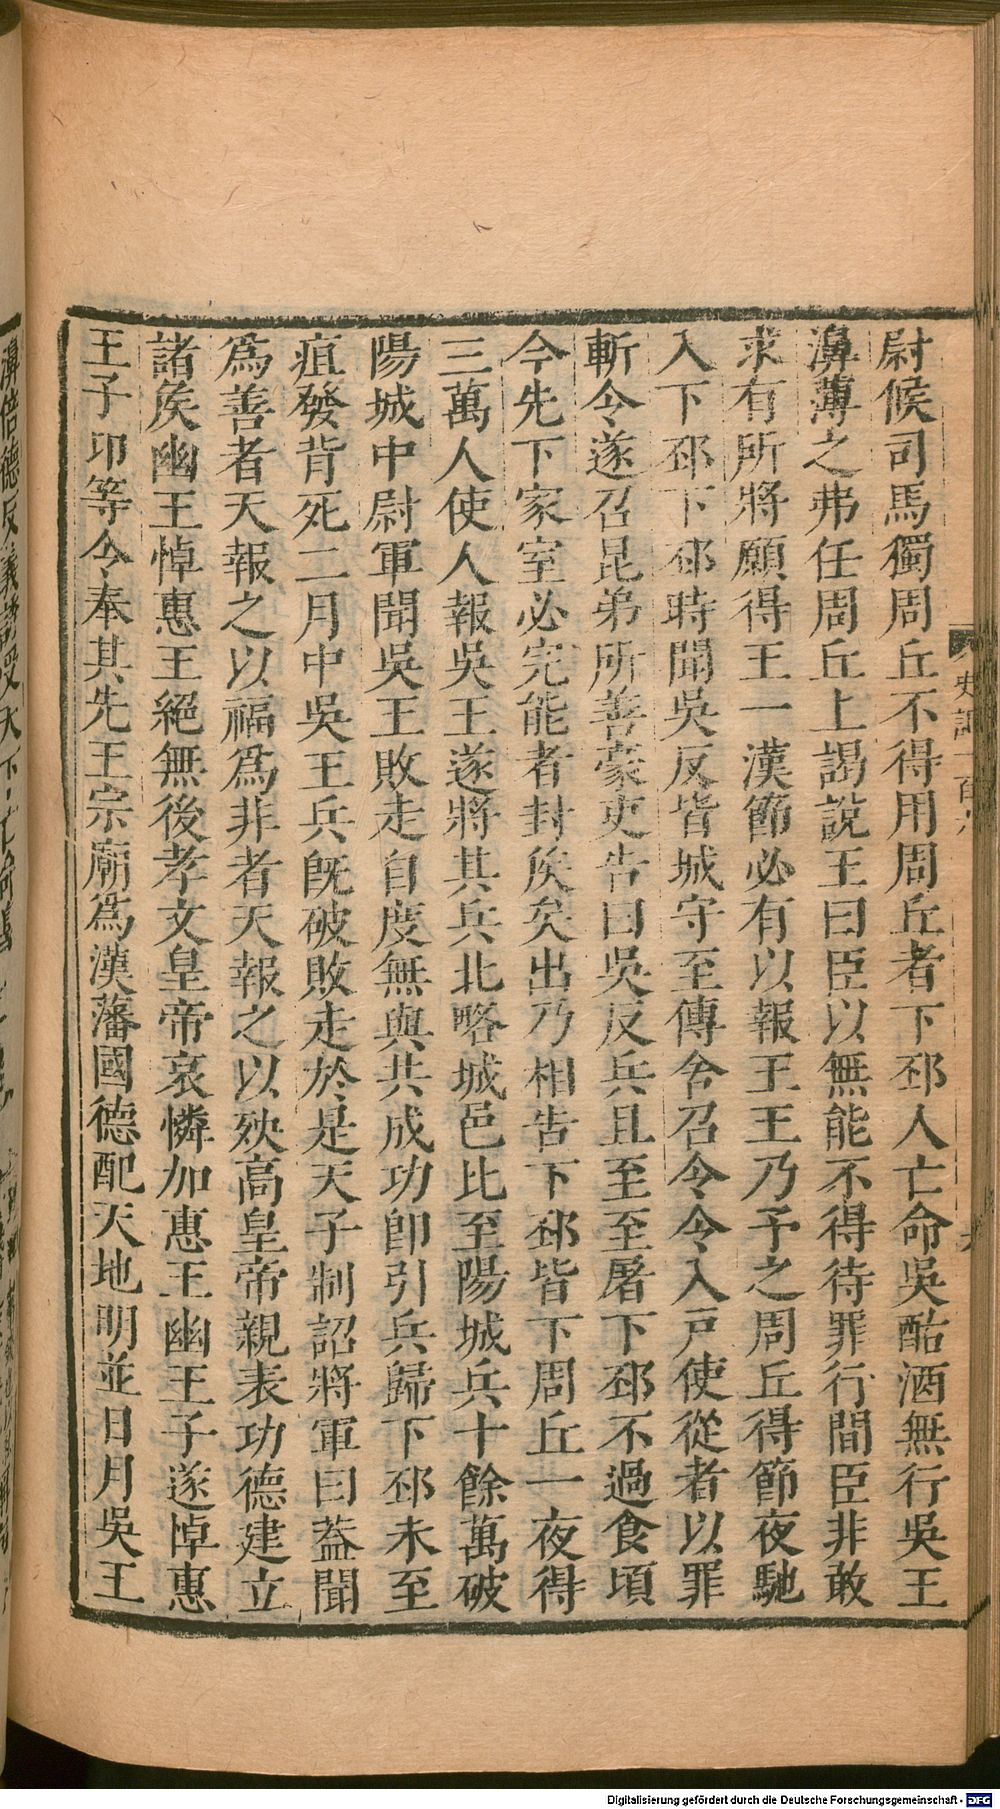 尉候司馬獨周丘不得用周丘者下邳人亡命吳酤酒無行吳王
濞薄之弗任周丘上謁說王曰臣以無能不得待罪行間臣非敢
求有所將願得王一漢節必有以報王王乃予之周丘得節夜馳
入下邳下邳時聞吳反皆城守至傳舍召令令入戸使從者以罪
斬令遂召昆弟所善豪吏告曰吳反兵且至至屠下邳不過食頃
今先下家室必完能者封矦矣出乃相告下邳皆下周丘一夜得
三萬人使人報吳王遂將其兵北略城邑比至陽城兵十餘萬破
陽城中尉軍聞吳王敗走自度無與共成功卽引兵歸下邳未至
疽發背死二月中吳王兵旣破敗走於是天子制詔將軍曰葢聞
爲善者天報之以福爲非者天報之以殃高皇帝親表功德建立
諸矦幽王悼惠王絕無後孝文皇帝哀憐加惠王幽王子遂悼惠
王子卭等令奉其先王宗廟爲漢藩國德配天地明並日月吳王
史記一百六
濞倍德反義誘受天下亡命
Digitalisierung gefördert durch die Deutsche Forschungsgemeinschaft - DFG